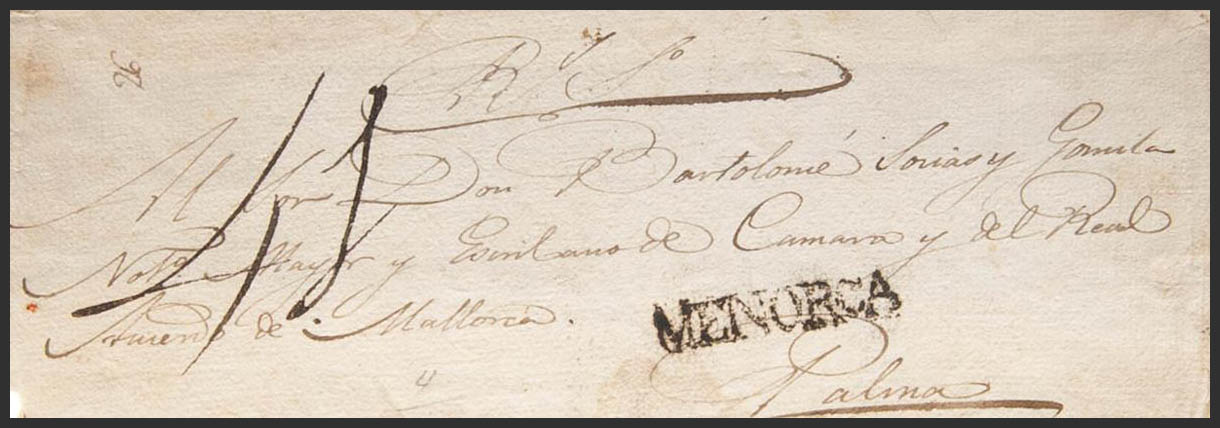 Rl So
Al Sor Don Bartolomé Socias y Gomila
Noto Mayor y Escribano de Camara y del Real
Acuerdo de Mallorca.
MENORCA
Palma
4